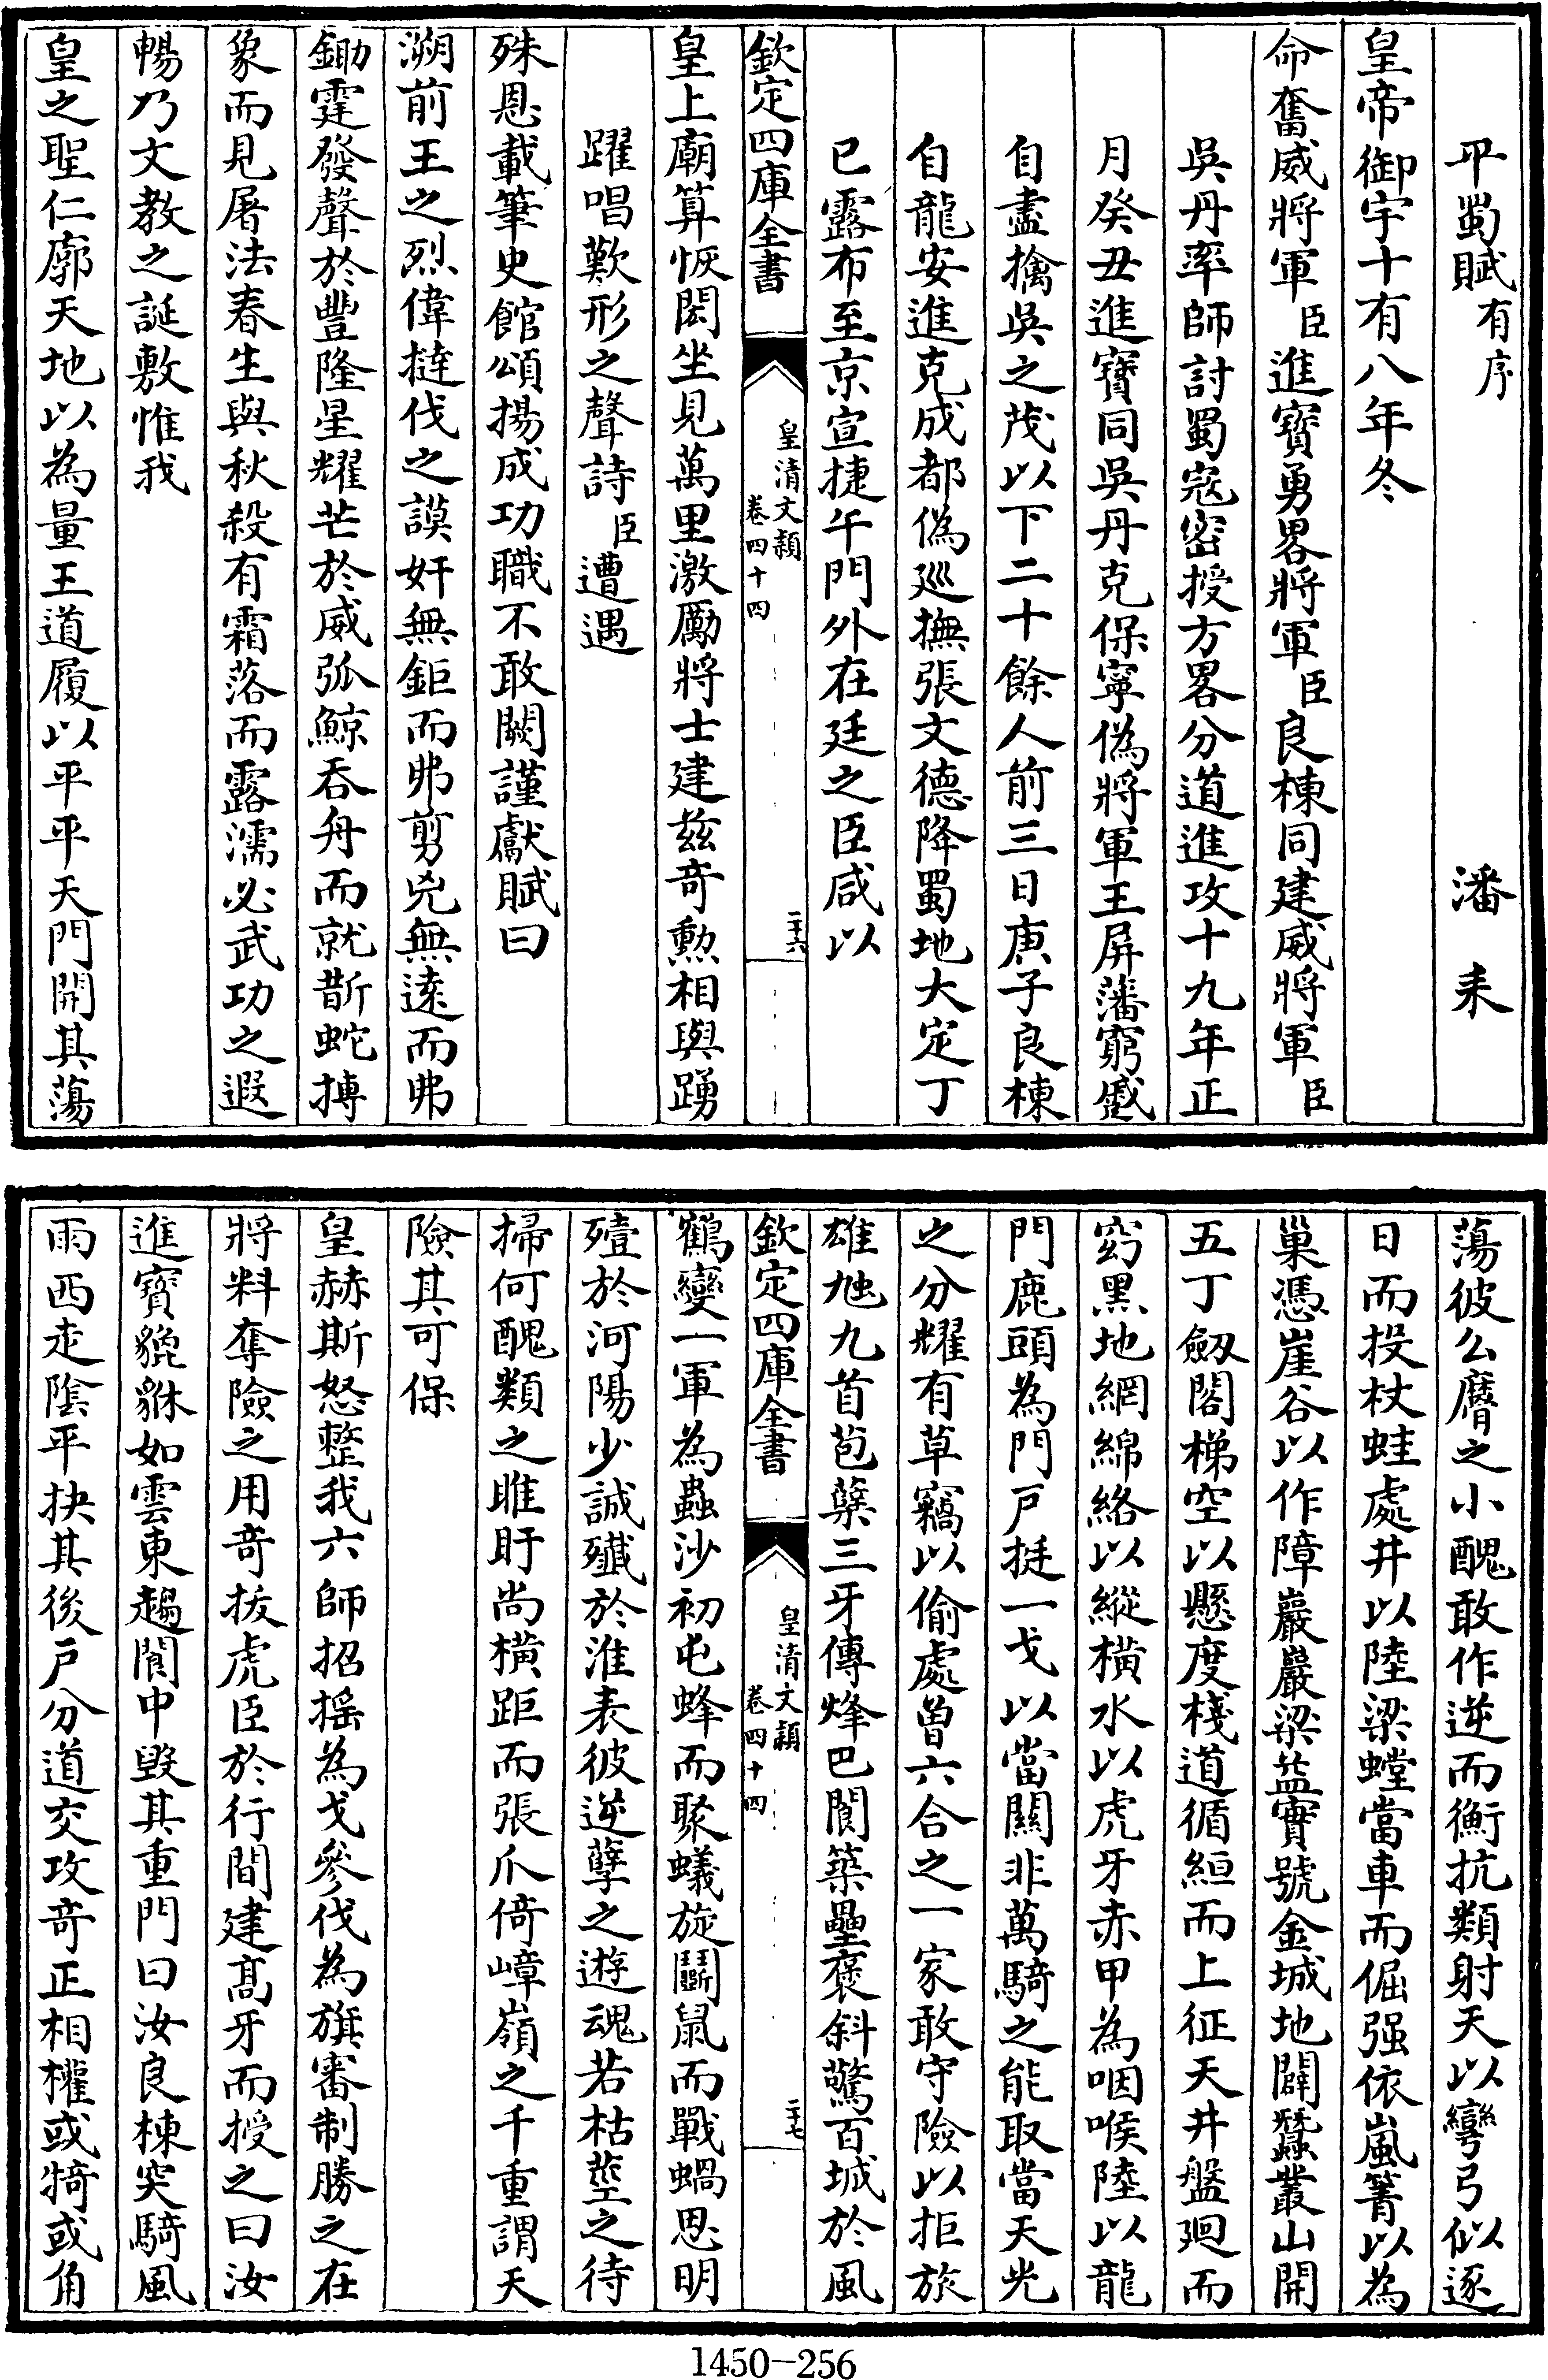 平蜀賦有序 潘耒
皇帝御宇十有八年冬
命奮威將軍臣進寶勇畧將軍臣良棟同建威將軍臣
吳丹率師討蜀寇密授方畧分道進攻十九年正
月癸丑進寶同吳丹克保寧偽將軍王屏藩窮蹙
自盡擒吳之茂以下二十餘人前三日庚子良棟
自龍安進克成都偽巡撫張文德降蜀地大定丁
已露布至京宣捷午門外在廷之臣咸以
欽定四庫全書 皇清文潁 卷四十四 二十六
皇上廟算恢閎坐見萬里激勵將士建兹奇勲相與踴
躍唱歎形之聲詩臣遭遇
殊恩載筆史館頌揚成功職不敢闕謹獻賦曰
溯前王之烈偉撻伐之謨奸無鉅而弗剪兇無遠而弗
鋤霆發聲於豐隆星耀芒於威弧鯨吞舟而就斮蛇搏
象而見屠法春生與秋殺有霜落而露濡必武功之遐
暢乃文教之誕敷惟我
皇之聖仁廓天地以為量王道履以平平天門開其蕩
蕩彼么麿之小醜敢作逆而衡抗類射天以彎弓似逐
日而投杖蛙處井以陸梁螳當車而倔强依嵐箐以為
巢憑崖谷以作障巖巖梁益實號金城地闢蠶叢山開
五丁劔閣梯空以懸度棧道循絙而上征天井盤廻而
窈黑地網綿絡以縱橫水以虎牙赤甲為咽喉陸以龍
門鹿頭為門户挺一戈以當關非萬騎之能取當天光
之分耀有草竊以偷處曽六合之一家敢守險以拒旅
雄虺九首苞蘖三牙傳烽巴閬築壘褒斜驚百城於風
欽定四庫全書 皇清文潁 卷四十四 二十七
鶴變一軍為蟲沙初屯蜂而聚蟻旋鬭鼠而戰蝸思明
殪於河陽少誠殲於淮表彼逆孽之遊魂若枯莖之待
掃何醜類之睢盱尚橫距而張爪倚嶂嶺之千重謂天
險其可保
皇赫斯怒整我六師招搖為戈參伐為旗審制勝之在
將料奪險之用奇拔虎臣於行間建髙牙而授之曰汝
進寶貔貅如雲東趨閬中毀其重門曰汝良棟突騎風
雨西走陰平抉其後户分道交攻奇正相權或犄或角
1450-256